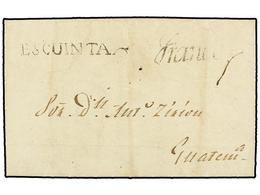 ESCUINTA. Franco
Sor. Dn. Anto. Zirion
Guatema